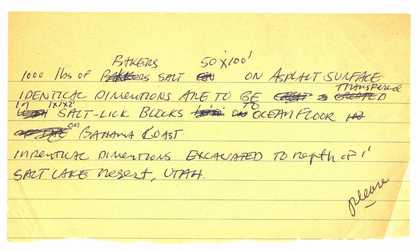 BAKERS 50'x100'
1000 lbs of SALT ON ASPALT SURFACE
TRANSFERED
IDENTICAL DIMENTIONS ARE TO BE
IN 1'x1'x2' TO
SALT-LICK BLOCKS OCEAN FLOOR
ON BAHAMA COAST
DIMENTIONS EXCAVATED TO Depth of 1'
SALT LAKE Desert, UTAH.
please